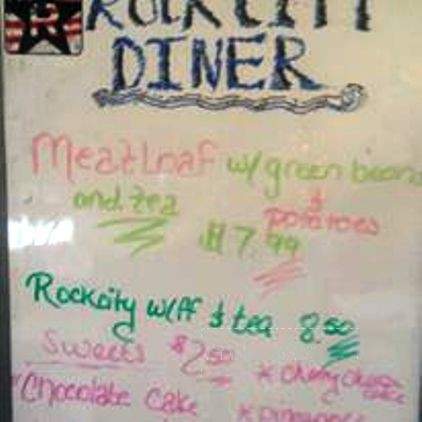 R
ROCK CITY
DINER
Meatloaf w/green beans
and tea & potatoes
$17.99
Rockcity w/ff & tea 8.50
Sweets $2.50
* cherry cheese cake
Chocolate cake